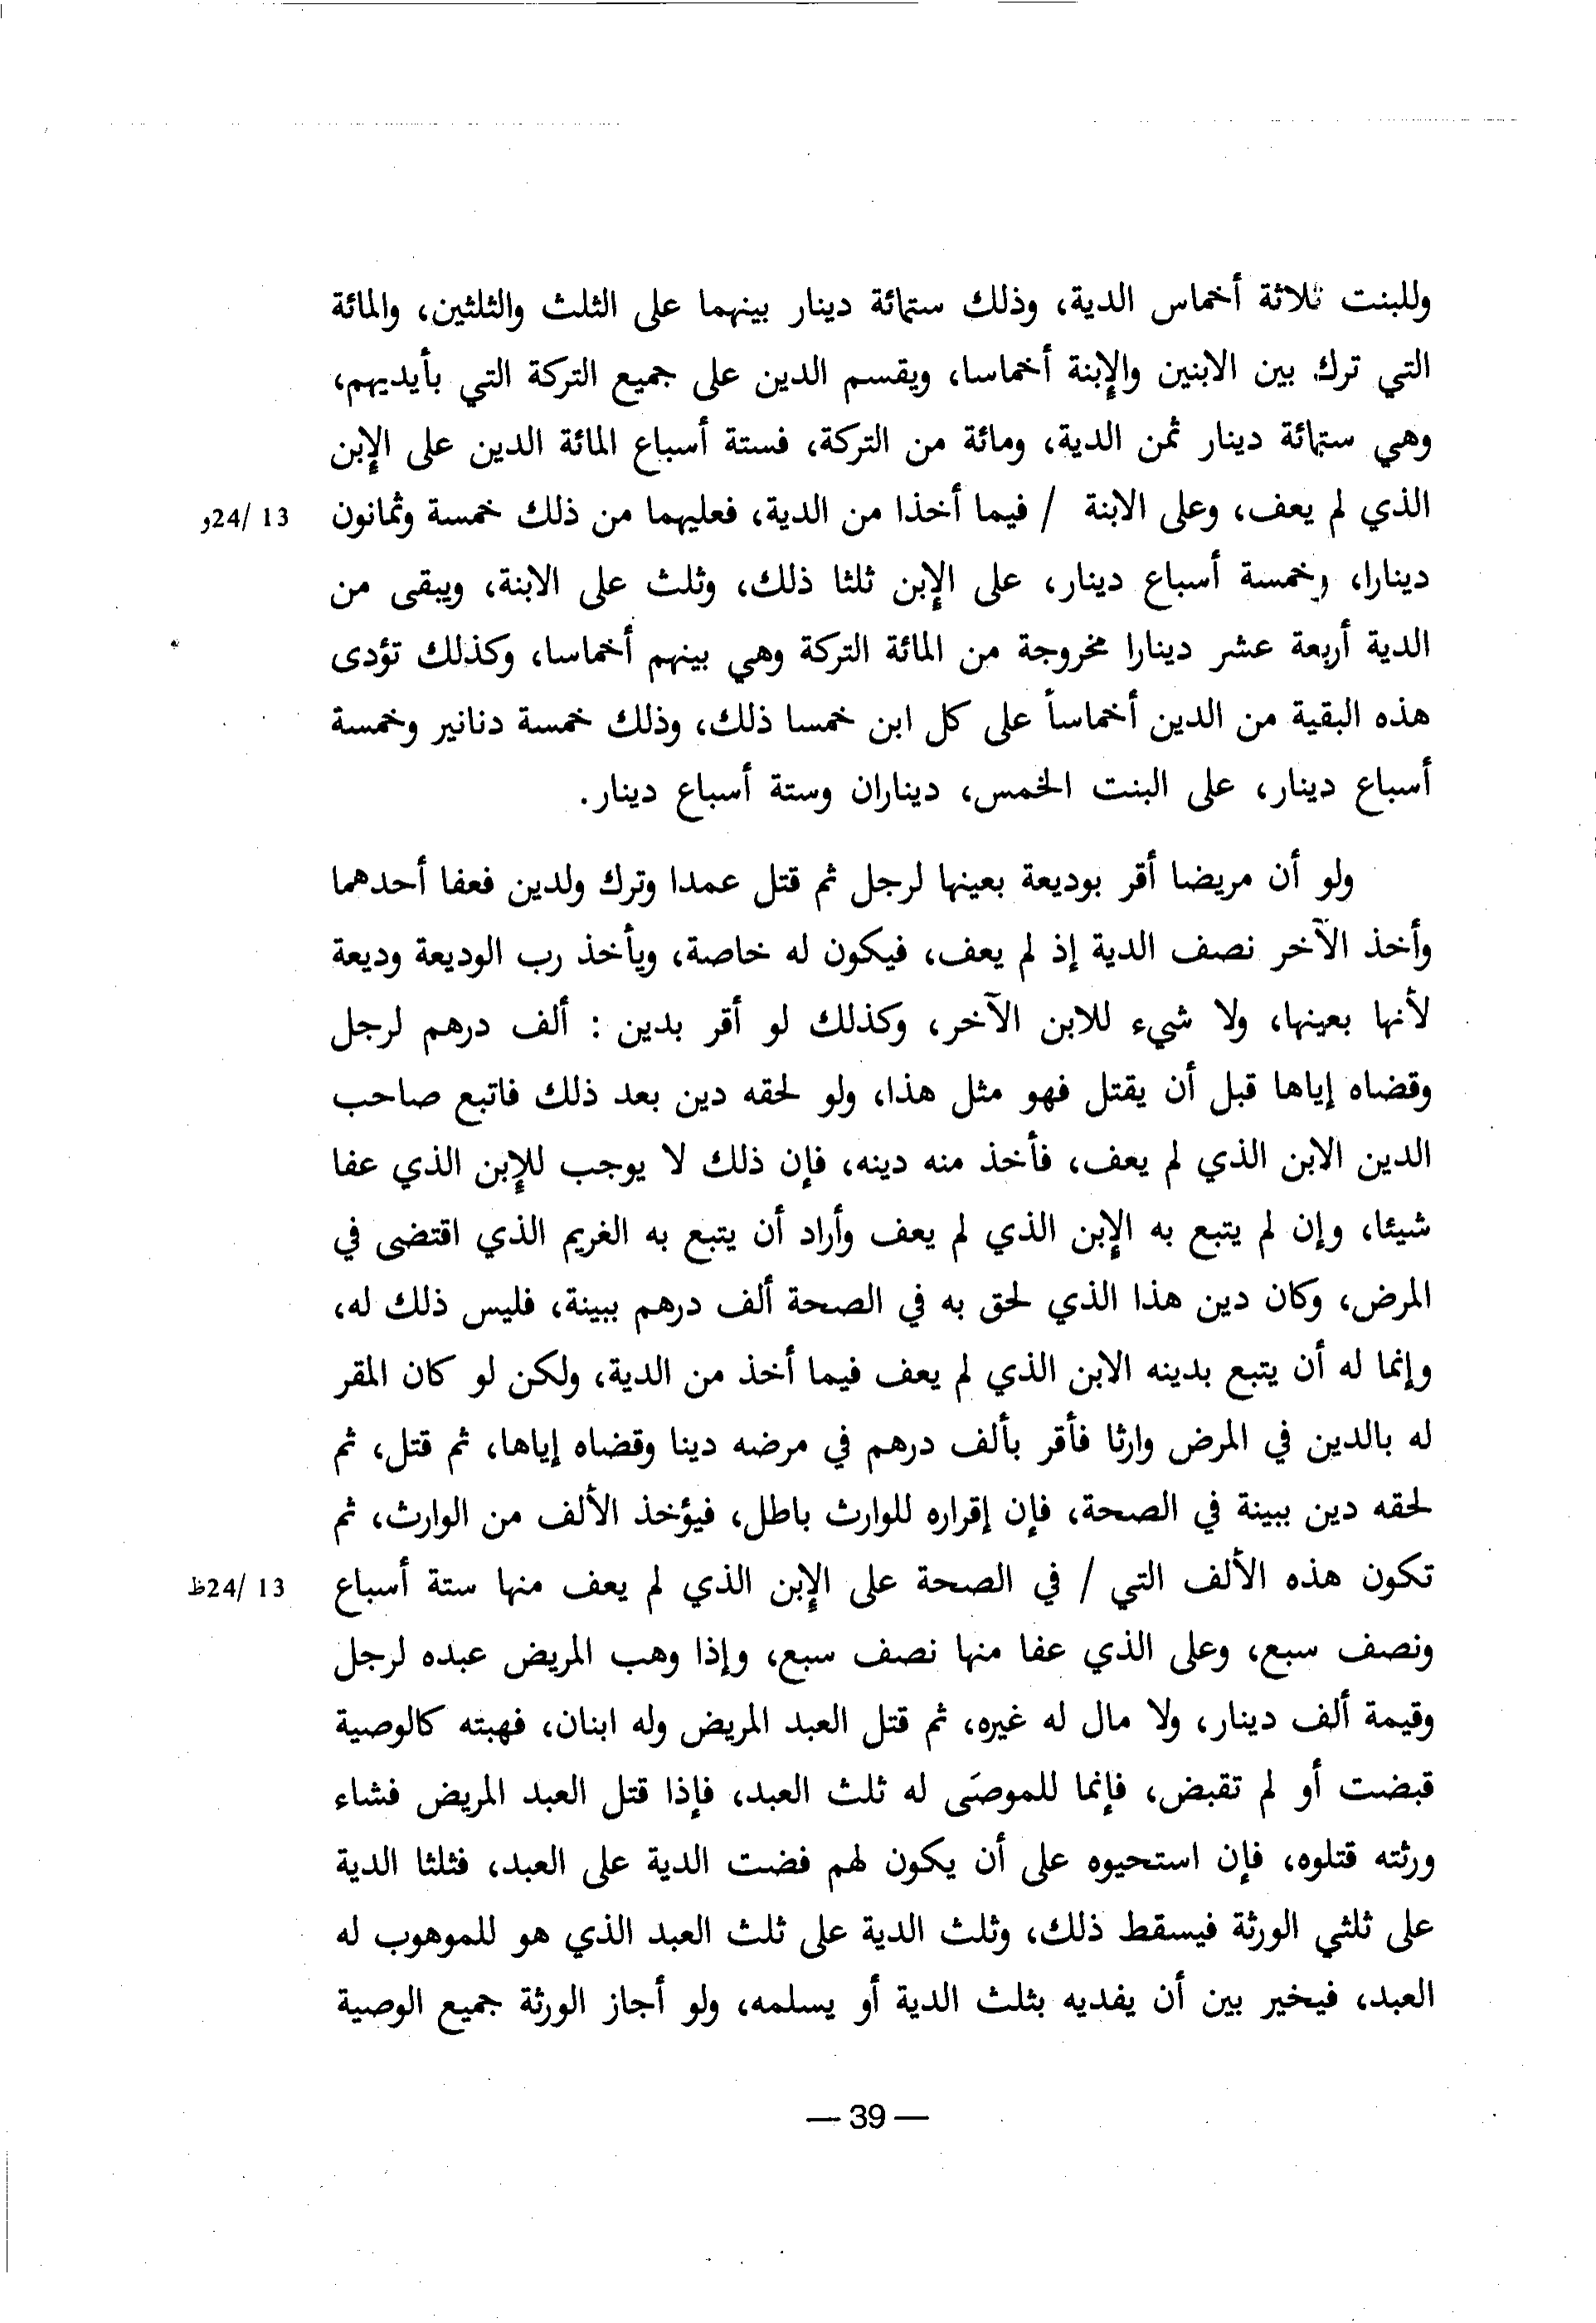 وللبنت ثلاثة أخماس الدية، وذلك ستمائة دينار بينهما على الثلث والثلثين، والمائة
التي ترك بين الابنين والإبنة أخماسا، ويقسم الدين على جميع التركة التي بأيديهم،
وهي ستمائة دينار ثمن الدية، ومائة من التركة، فستة أسباع المائة الدين على الإبن
الذي لم يعف، وعلى الابنة / فيما أخذا من الدية، فعليهما من ذلك خمسة وثمانون 13 /24و
دينارا، وخمسة أسباع دينار، على الإبن ثلثا ذلك، وثلث على الابنة، ويبقى من
الدية أربعة عشر دينارا مخروجة من المائة التركة وهي بينهم أخماسا، وكذلك تؤدى
هذه البقية من الدين أخماساً على كل ابن خمسا ذلك، وذلك خمسة دنانير وخمسة
أسباع دينار، على البنت الخمس، ديناران وستة أسباع دينار.
ولو أن مريضا أقر بوديعة بعينها لرجل ثم قتل عمدا وترك ولدين فعفا أحدهما
وأخذ الآخر نصف الدية إذ لم يعف، فيكون له خاصة، ويأخذ رب الوديعة وديعة
لأنها بعينها، ولا شيء للابن الآخر، وكذلك لو أقر بدين : ألف درهم لرجل
وقضاه إياها قبل أن يقتل فهو مثل هذا، ولو لحقه دين بعد ذلك فاتبع صاحب
الدين الابن الذي لم يعف، فأخذ منه دينه، فإن ذلك لا يوجب للإبن الذي عفا
شيئا، وإن لم يتبع به الإبن الذي لم يعف وأراد أن يتبع به الغريم الذي اقتضى في
المرض، وكان دين هذا الذي لحق به في الصحة ألف درهم ببينة، فليس ذلك له،
وإنما له أن يتبع بدينه الابن الذي لم يعف فيما أخذ من الدية، ولكن لو كان المقر
له بالدين في المرض وارثا فأقر بألف درهم في مرضه دينا وقضاه إياها، ثم قتل، ثم
لحقه دين ببينة في الصحة، فإن إقراره للوارث باطل، فيؤخذ الألف من الوارث، ثم
تكون هذه الألف التي / في الصحة على الإبن الذي لم يعف منها ستة أسباع 13 /24ظ
ونصف سبع، وعلى الذي عفا منها نصف سبع، وإذا وهب المريض عبده لرجل
وقيمة ألف دينار، ولا مال له غيره، ثم قتل العبد المريض وله ابنان، فهبته كالوصية
قبضت أو لم تقبض، فإنما للموصَى له ثلث العبد، فإذا قتل العبد المريض فشاء
ورثته قتلوه، فإن استحيوه على أن يكون لهم فضت الدية على العبد، فثلثا الدية
على ثلثي الورثة فيسقط ذلك، وثلث الدية على ثلث العبد الذي هو للموهوب له
العبد، فيخير بين أن يفديه بثلث الدية أو يسلمه، ولو أجاز الورثة جميع الوصية
— 39 —